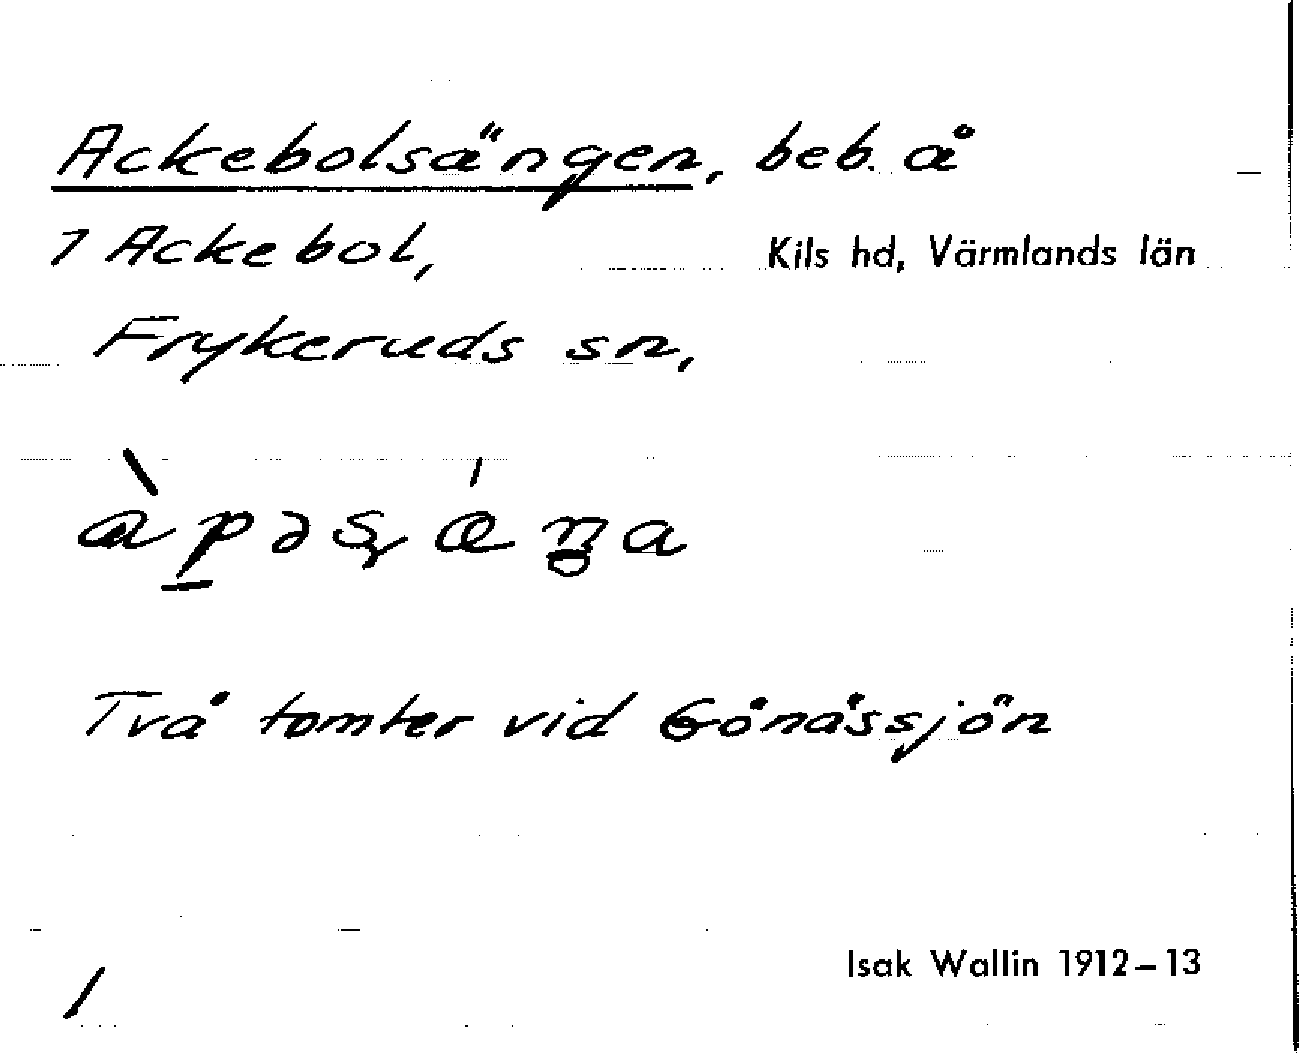 Ackebolsängen, beb. å
1 Ackebol, Kils hd, Värmlands län
Frykeruds sn,
Två tomter vid Gönässjön
Isak Wallin 1912–13
/